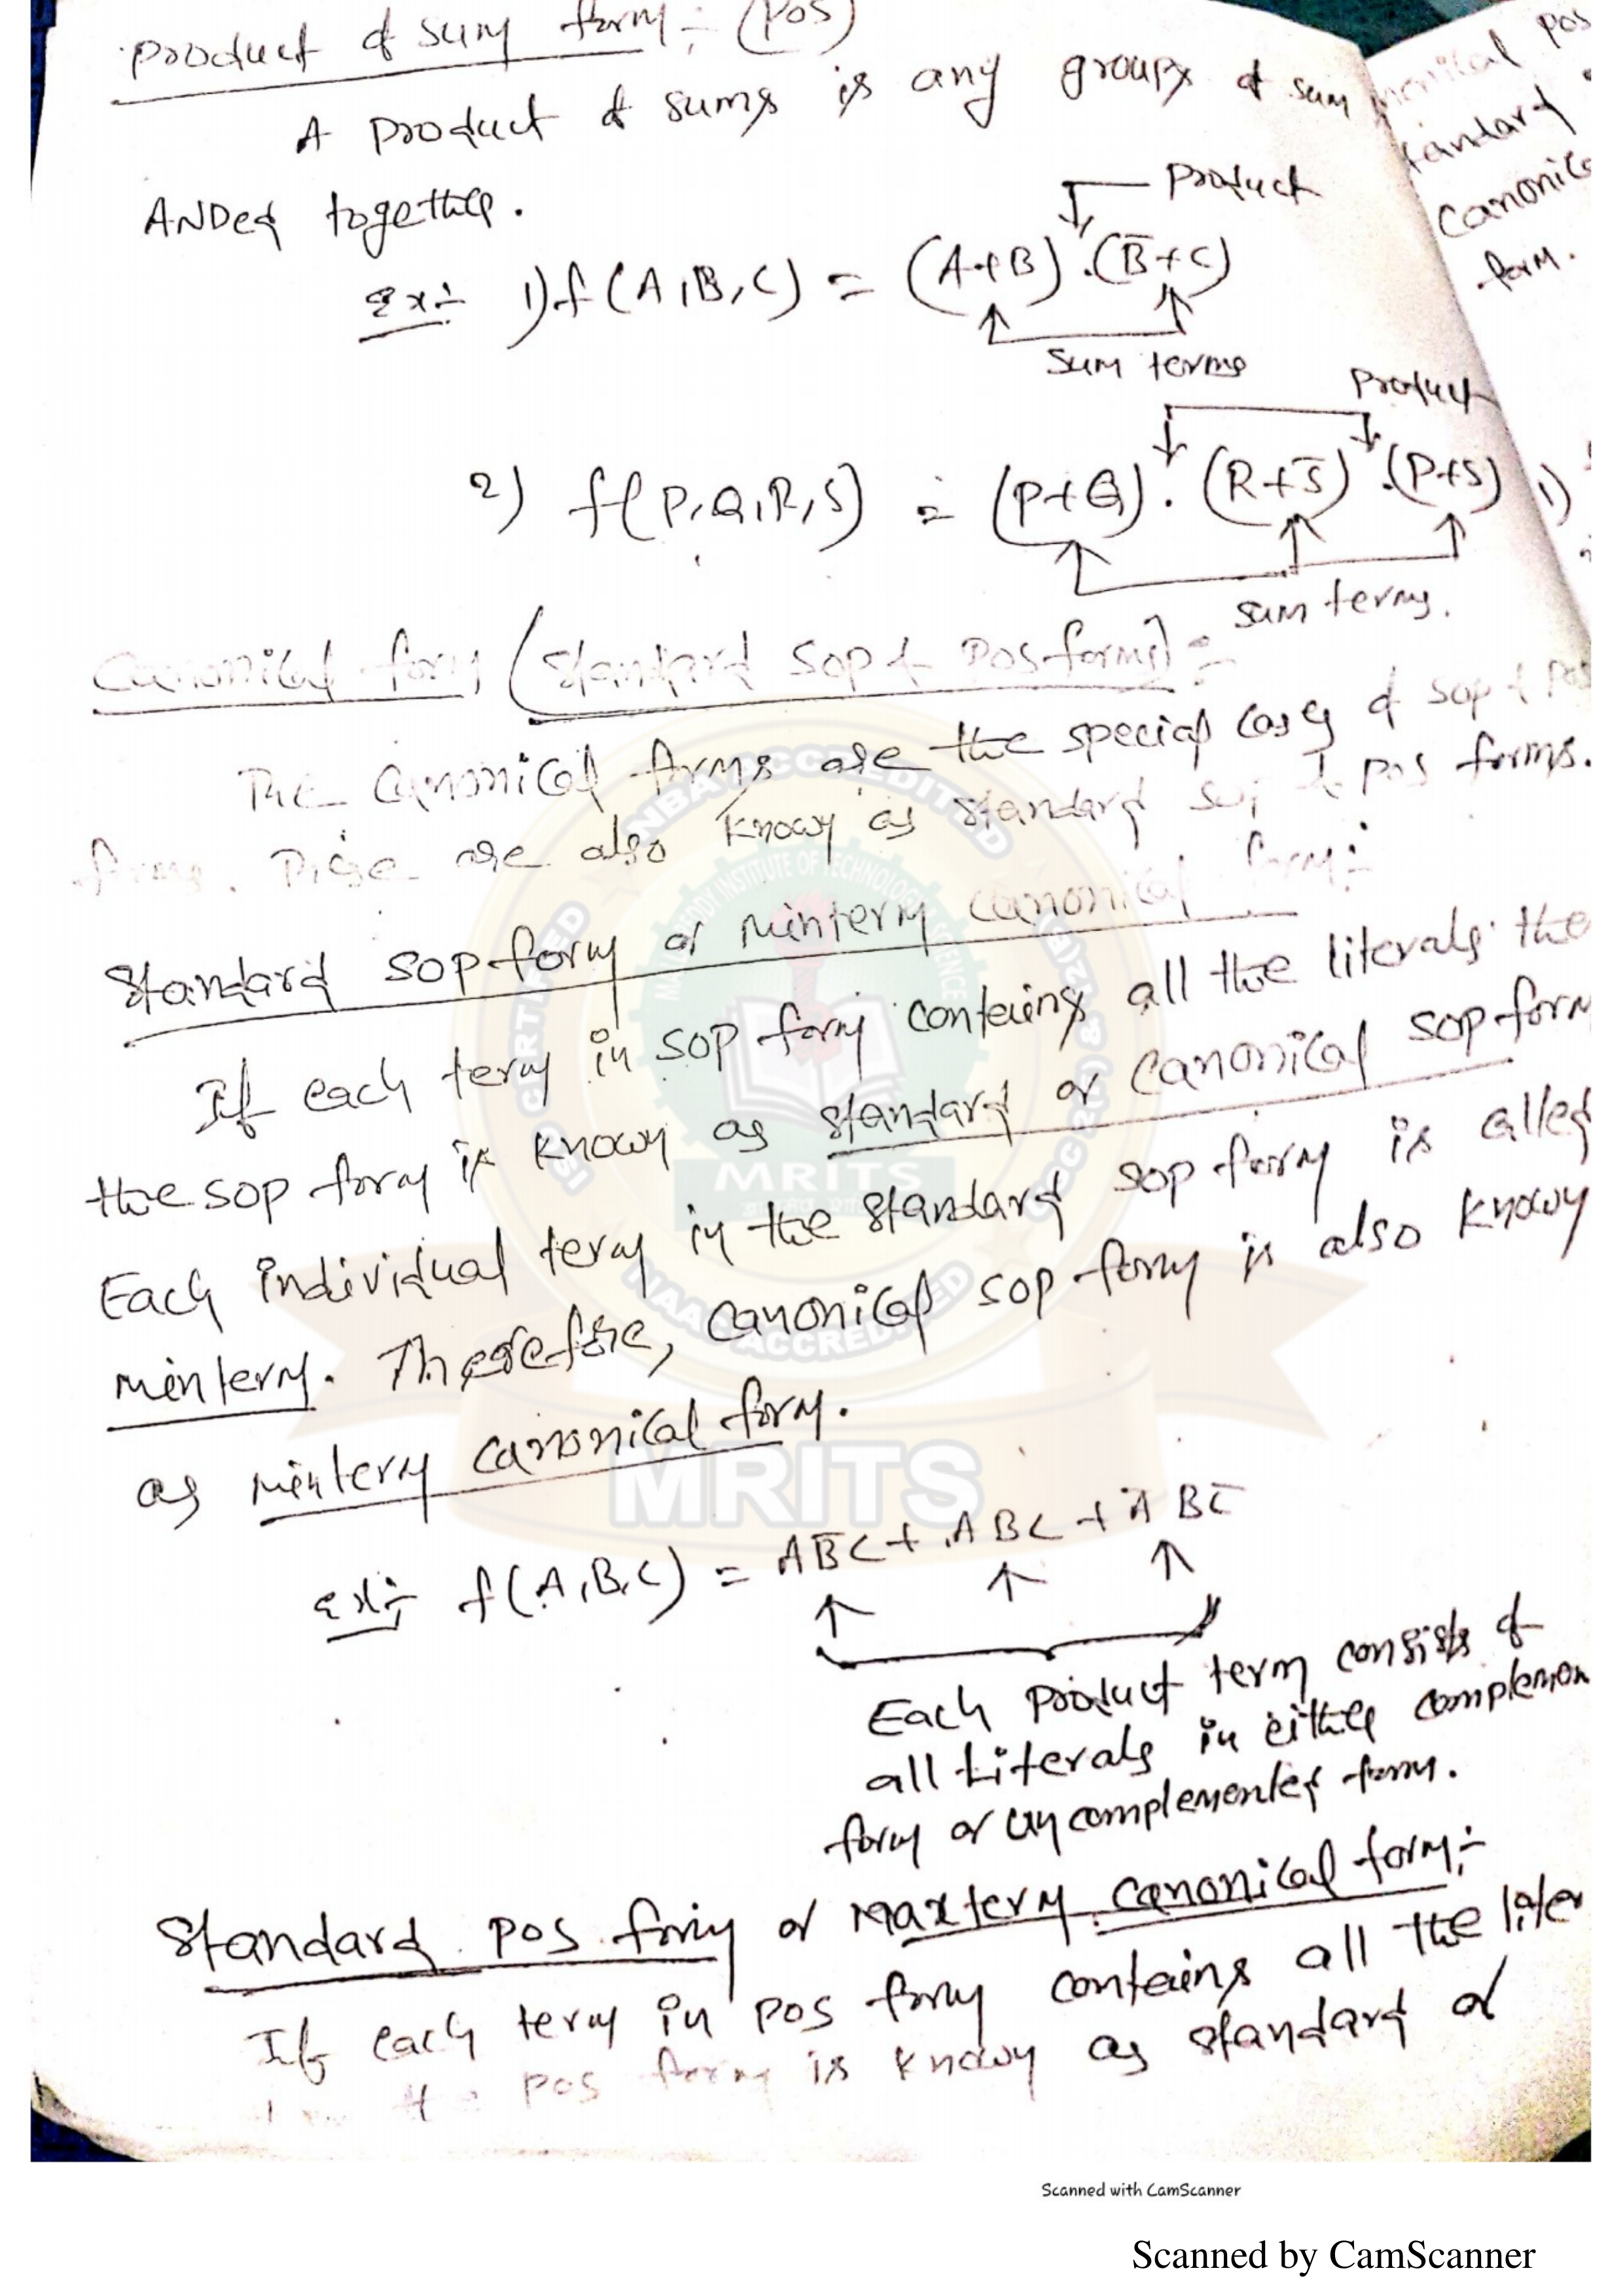 Product of sum form:- (POS)
A product of sums is any groups of sum
ANDed together.
Product
Ex:- 1) f(A,B,C) = (A+B).(B̅+C)
Sum terms
Product
2) f(P,Q,R,S) = (P+Q).(R+S̅).(P+S)
sum terms.
Canonical form (Standard SOP & POS forms):-
The canonical forms are the special cases of SOP & POS
forms. These are also known as standard SOP & POS forms.
Standard SOP form or Minterm canonical form:-
If each term in SOP form contains all the literals the
the SOP form is known as standard or canonical SOP form
Each individual term in the standard SOP form is called
minterm. Therefore, canonical SOP form is also known
as minterm canonical form.
Ex:- f(A,B,C) = AB̅C + ABC + A̅BC̅
Each product term consists of
all Literals in either complemen
form or uncomplemented form.
Standard POS form or Maxterm canonical form:-
If each term in POS form contains all the liter
the POS form is known as standard or
POS
tandard
Canonic
form.
1)
CERTIFIED
NBA ACCREDITED
NAAC ACCREDITED
MRITS
MRITS
Scanned with CamScanner
Scanned by CamScanner